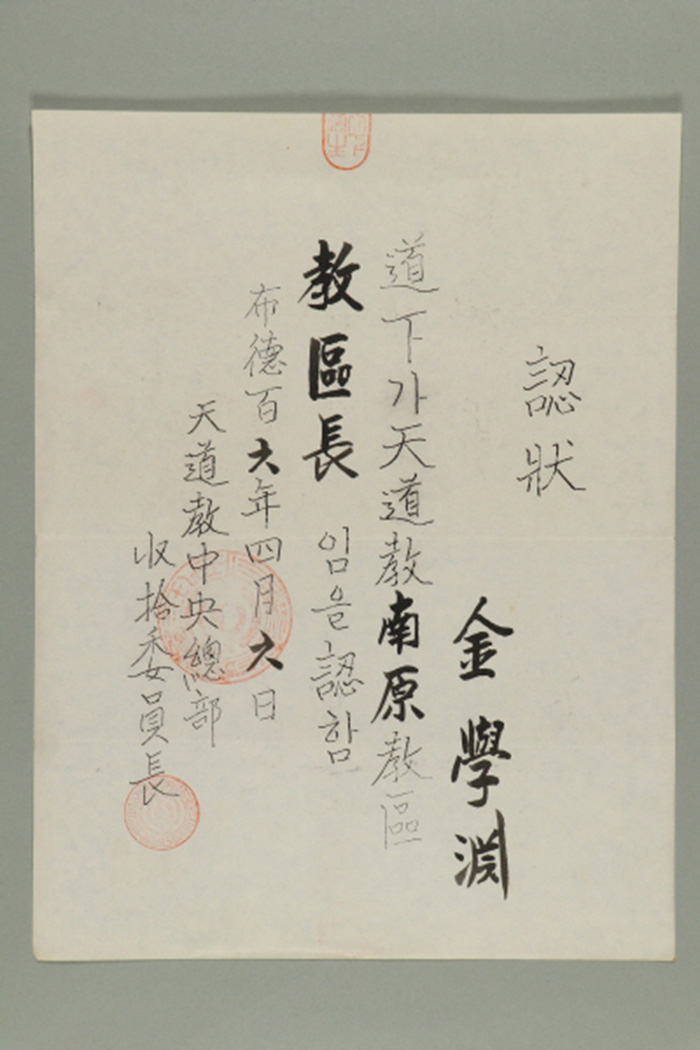 認狀
金學淵
道下가天道敎南原敎區
敎區長 임을認함
布德百六年四月六日
天道敎中央總部
收拾委員長